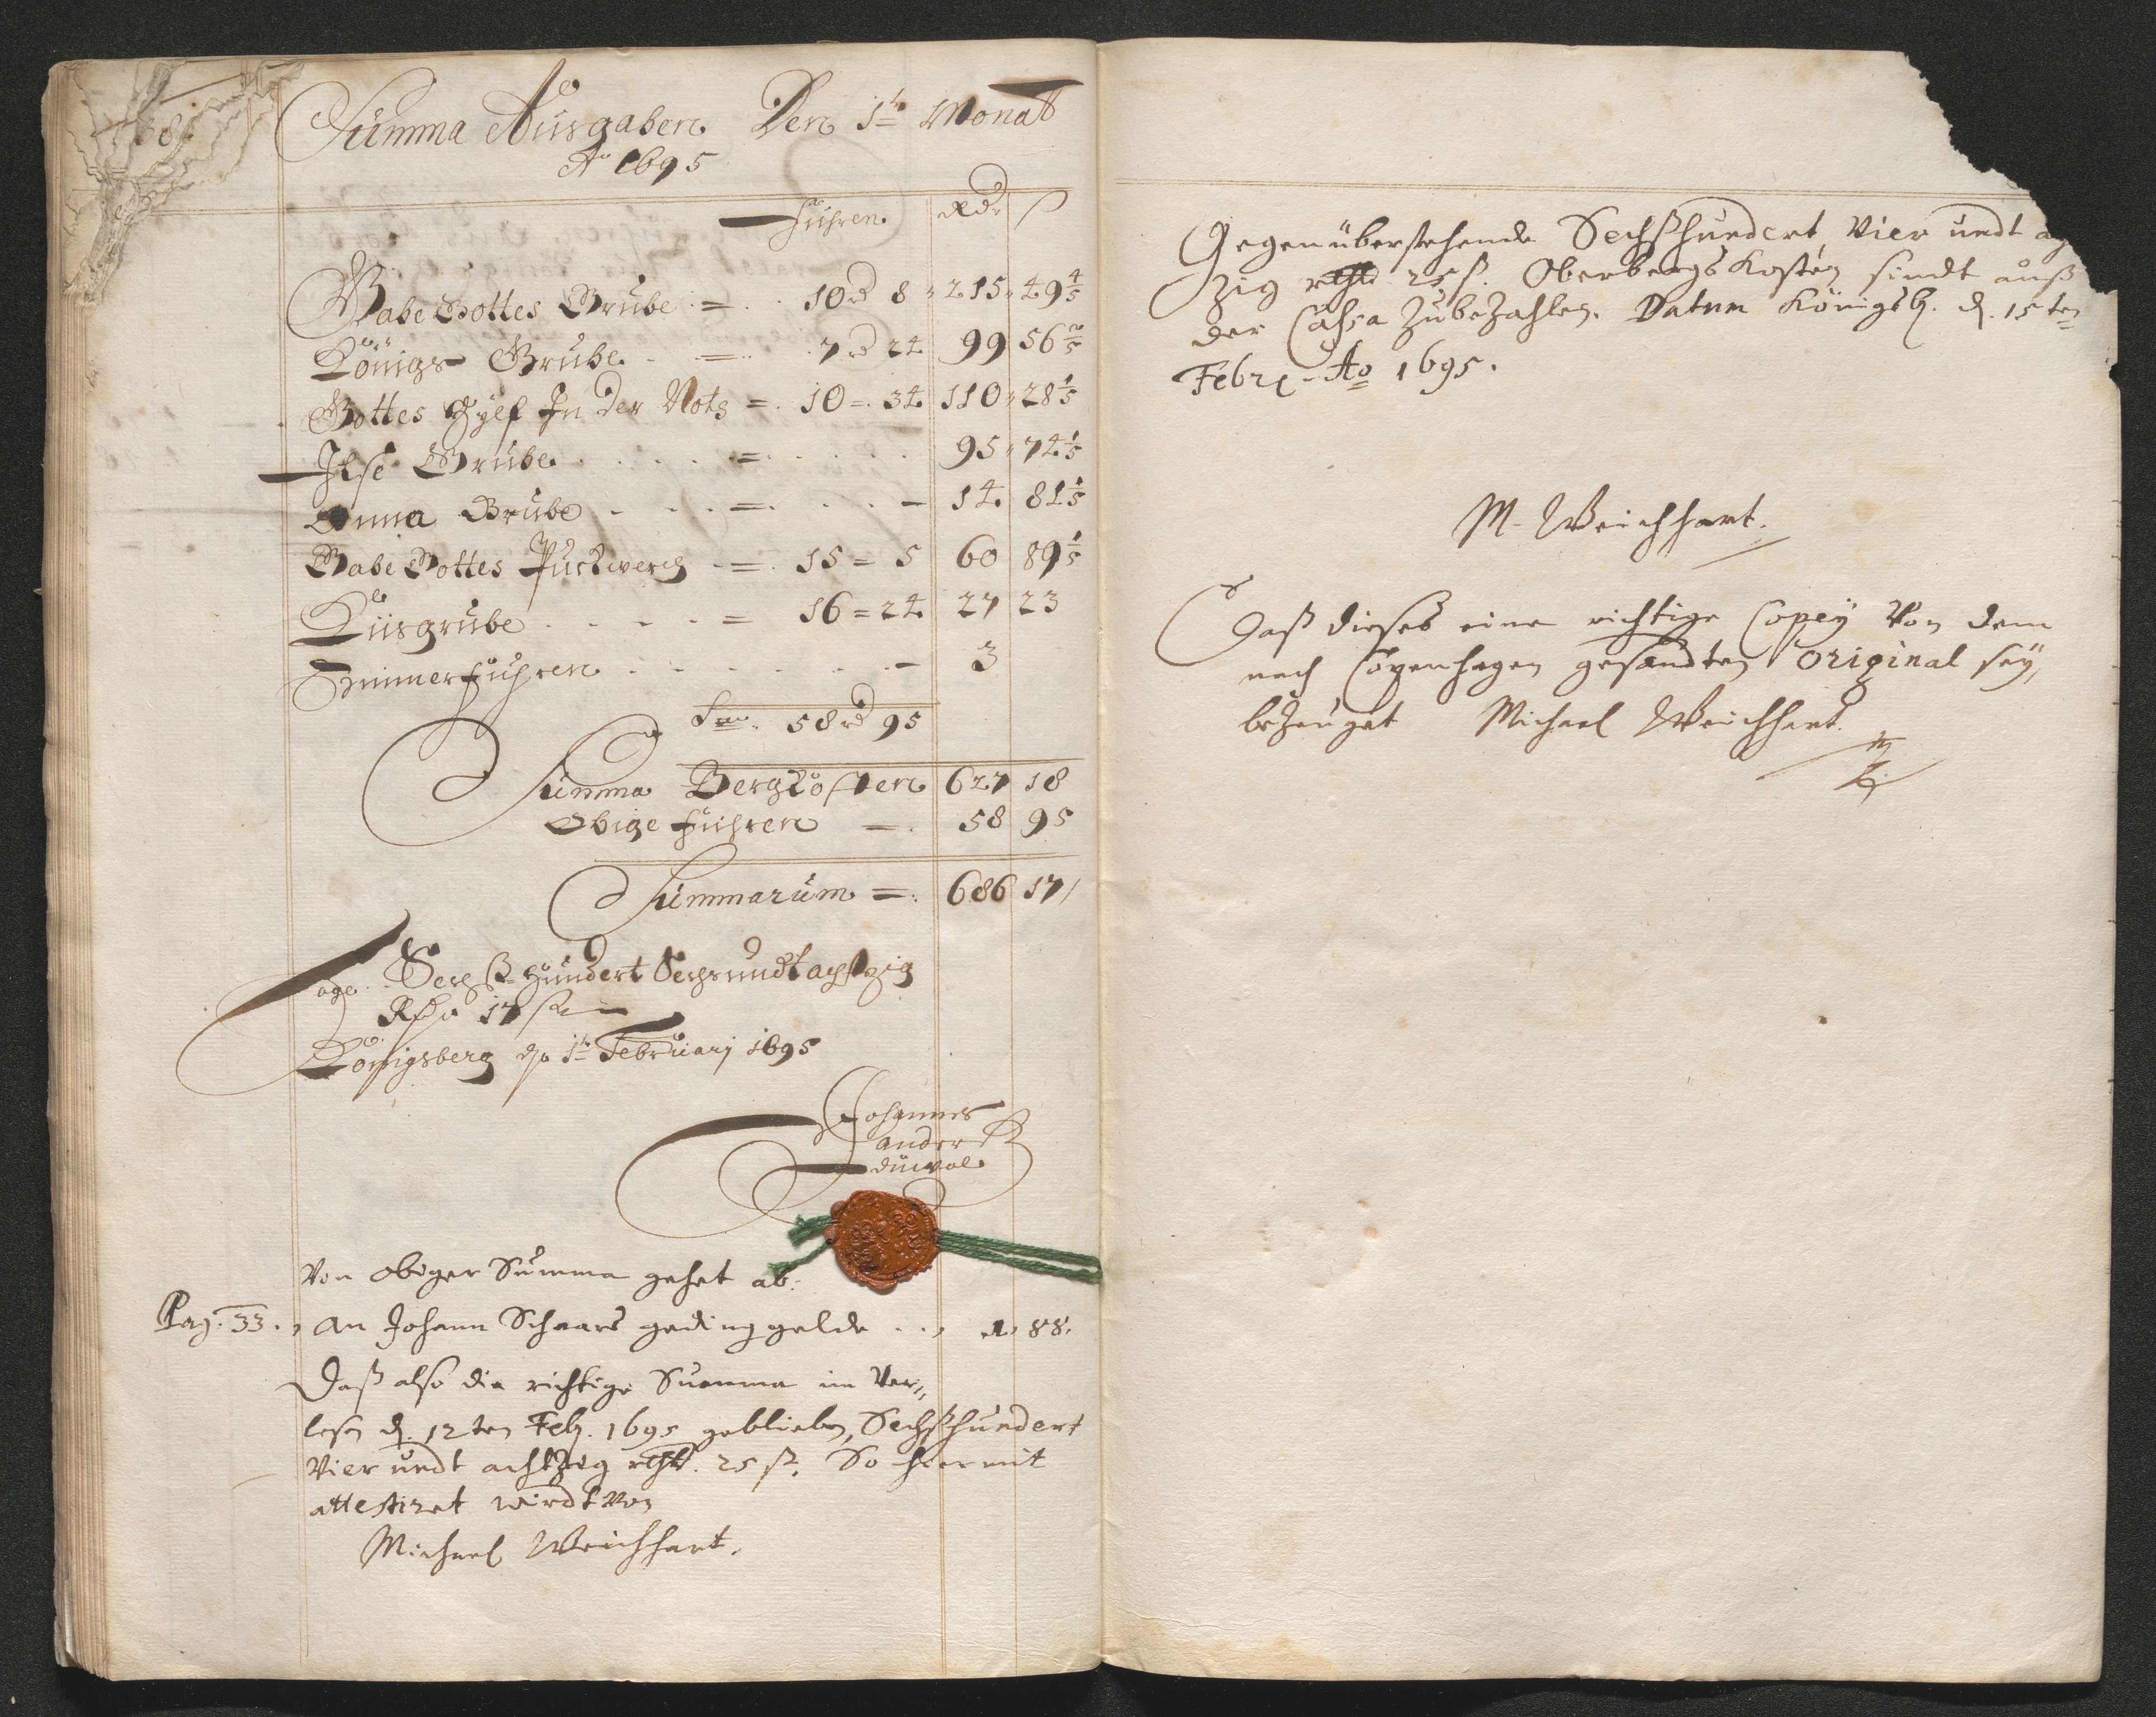 Summa Ausgaben Den 1t Monat
Ao 1695
fuhren Rdr ß
Gabe Gottes Grube = 10 rd 8 215 49 4/5
Königs Grube = 7 rd 24 99 56
Gottes Hylf In der Noth = 10 = 34 110 28 1/5
Ilse Grube = 95 74 1/5
Anna Grube = 14 81 1/5
Gabe Gottes Puckwerch = 15 = 5 60 89 1/5
Kiisgrube = 16 = 24 27 23
3
Sma. 58 rd 95
Summa Bergkosten 627 18
Obige fuhren 58 95
Summarum = 686 17
Sechß Hundert Sechsundtachtzig
17 ß
Königsberg 1t Februarj 1695
Johannes
Von obiger Summa gehet ab.
Pag. 33. an Johann Schaars gedinggelde 1 88.
Daß also die richtige Summa im Ver
lesen d. 12ten Feb. 1695 geblieben, Sechßhundert
Vier undt achtzig rthlr. 25 ß. So hiermit
attestiret wirdt von
Michael Weichhart.
Gegenüberstehende Sechßhundert Vier undt
zig rthlr 25 ß. Oberbergs Kosten sindt auß
der Cassa zu bezahlen. Datum Königsb. d. 15ten
Febr. Ao 1695.
M. Weichhart.
Daß dieses eine richtige Copey Von dem
nach Copenhagen gesandten Original sey,
bezeuget Michael Weichhart.